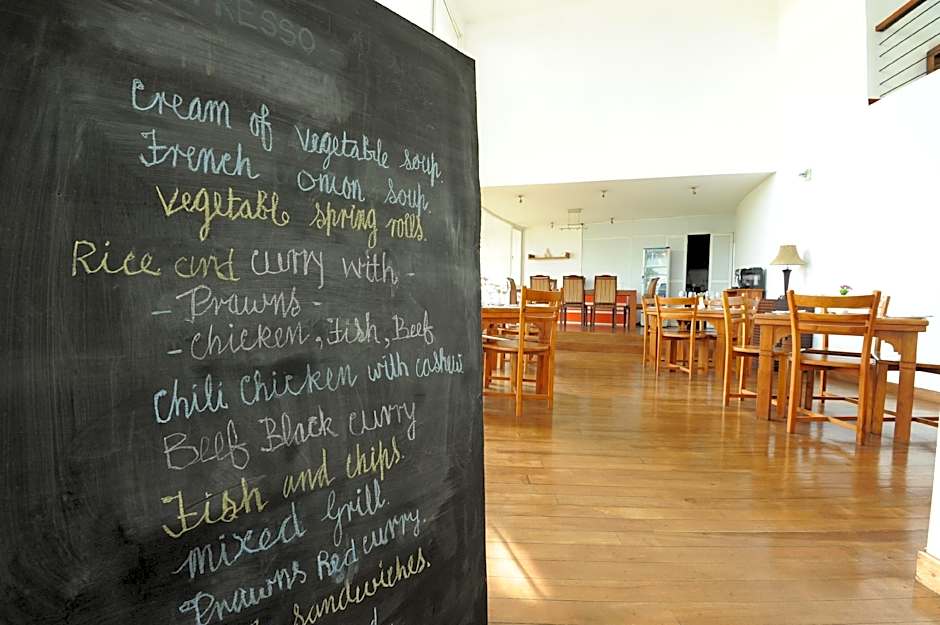 RESSO
Cream of vegetable soup.
French onion soup.
Vegetable spring rolls.
Rice and curry with -
- Prawns -
- Chicken, Fish, Beef
Chili chicken with cashew
Beef Black curry
Fish and chips.
mixed Grill.
Prawns Red curry.
sandwiches.